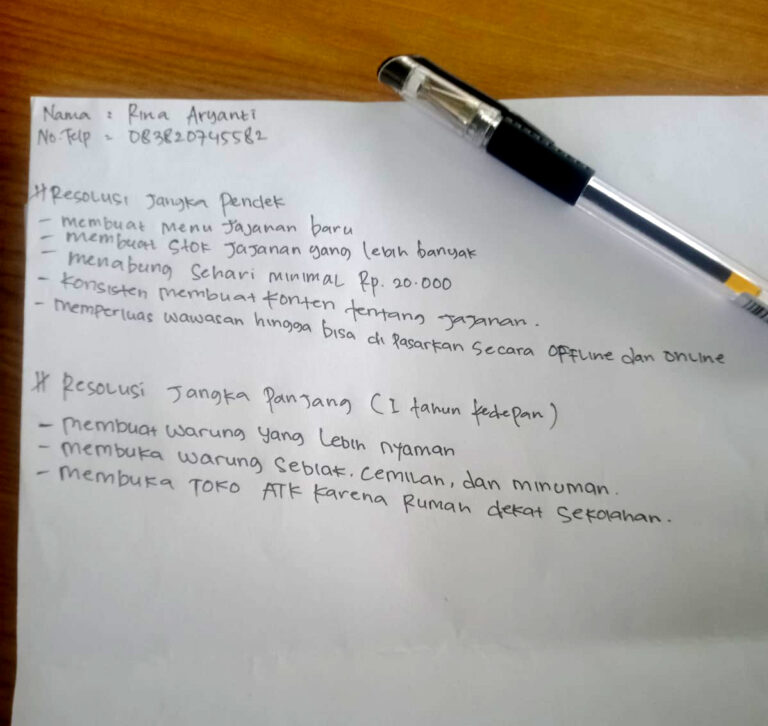 Nama : Rina Aryanti
No.Telp = 083820745582
# Resolusi Jangka Pendek
- membuat Menu Jajanan baru
- membuat Stok Jajanan yang lebih banyak
- menabung Sehari minimal Rp. 20.000
- Konsisten membuat konten tentang Jajanan.
- memperluas wawasan hingga bisa di Pasarkan Secara OFFLine dan OnLine
# Resolusi Jangka Panjang (1 tahun kedepan)
- membuat warung yang Lebih nyaman
- membuka warung Seblak. Cemilan, dan minuman.
- membuka TOKO ATK Karena Rumah dekat Sekolahan.